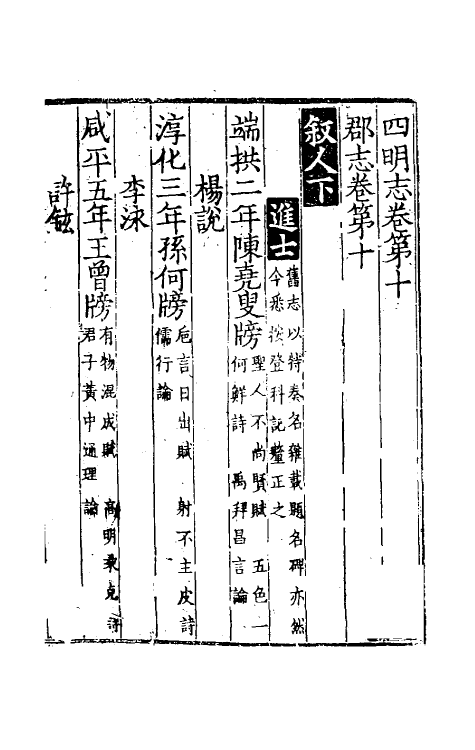 四明志卷第十
郡志卷第十
敘人下
進士
舊志以特奏名雜載題名碑亦然
今悉按登科記釐正之
端拱二年陳堯叟牓
聖人不尚賢賦 五色一
何鮮詩 禹拜昌言論
楊說
淳化三年孫何牓
巵言日出賦 射不主皮詩
儒行論
李泳
咸平五年王曾牓
有物混成賦 高明柔克詩
君子黃中通理論
許鉉